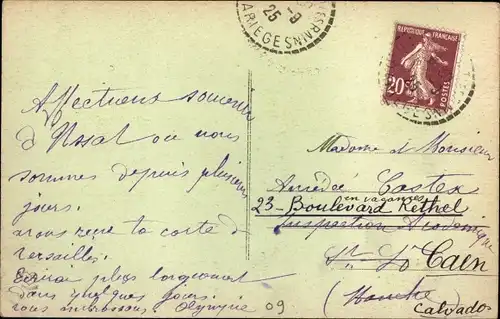 ARIEGE
25 -9
REPUBLIQUE FRANÇAISE
20c
POSTES
Affectueux souvenir
d'Ussat où nous
sommes depuis plusieurs
jours.
avons reçu ta carte de
Versailles.
Ecrirai plus longuement
dans quelques jours.
vous embrassons. Olympia 09
Madame et Monsieur
Amédée Castex
en vacances
23 - Boulevard Rethel
Inspection Académique
St Lô Caen
(Manche
Calvados